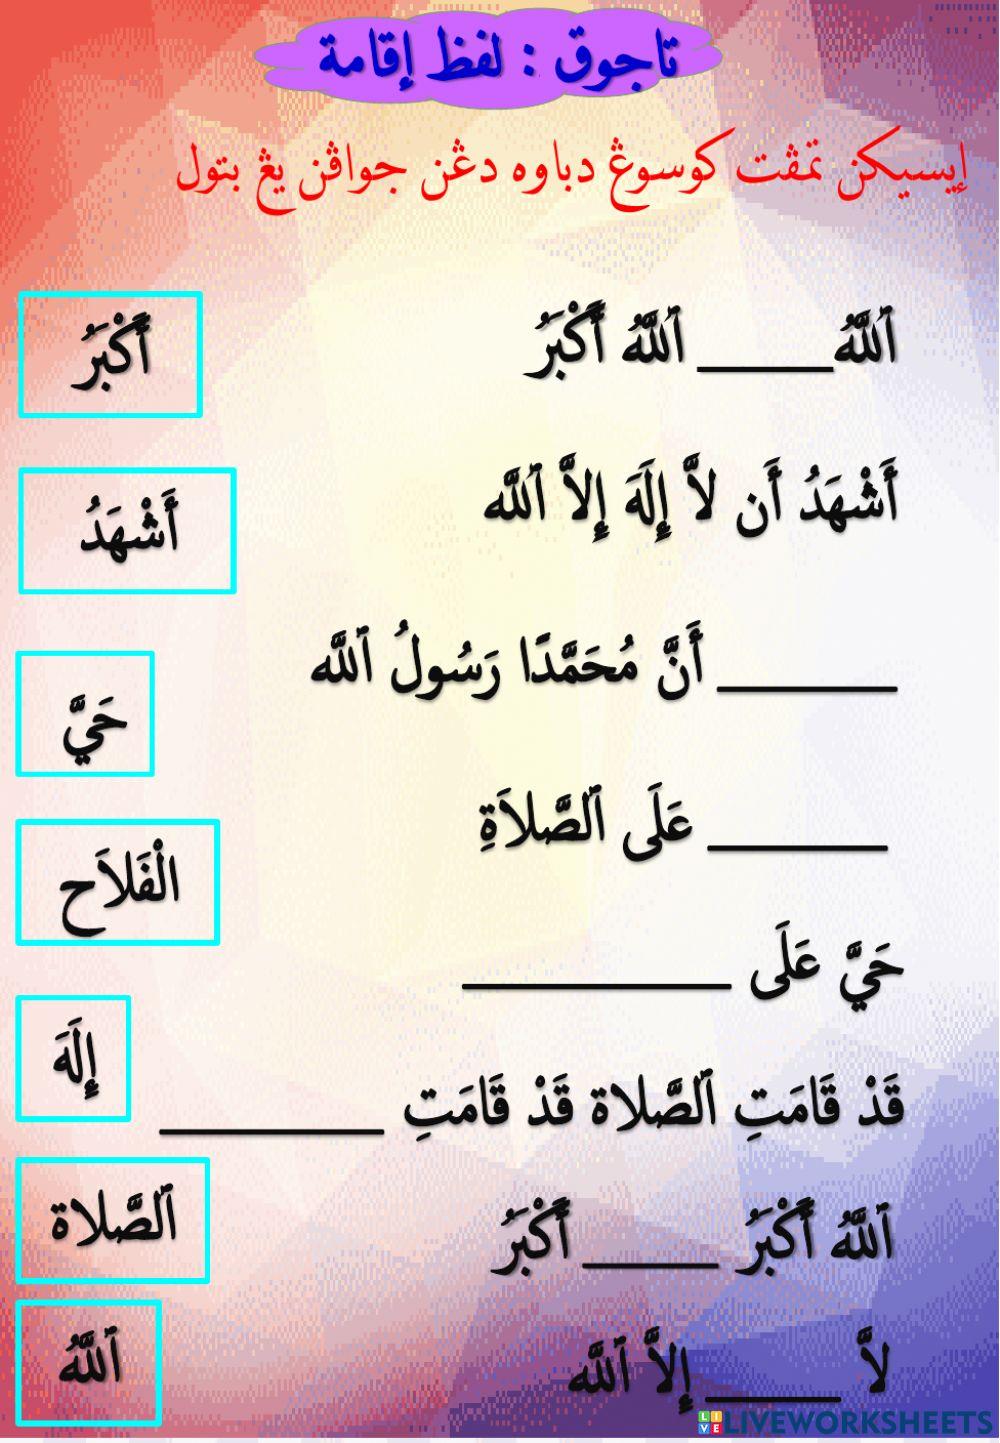 تاجوق : لفظ إقامة
إيسيكن تمڤت كوسوڠ دباوه دڠن جواڤن يڠ بتول
ٱللَّهُ_____ ٱللَّهُ أَكْبَرُ
أَكْبَرُ
أَشْهَدُ أَن لاَّ إِلَهَ إِلاَّ ٱللَّه
أَشْهَدُ
______ أَنَّ مُحَمَّدًا رَسُولُ ٱللَّه
حَيَّ
______ عَلَى ٱلصَّلاَةِ
الْفَلاَح
حَيَّ عَلَى _________
إِلَهَ
قَدْ قَامَتِ ٱلصَّلاة قَدْ قَامَتِ ________
ٱلصَّلاة
ٱللَّهُ أَكْبَرُ _____ أَكْبَرُ
ٱللَّهُ
لاَّ _____ إِلاَّ ٱللَّه
LIVE LIVEWORKSHEETS